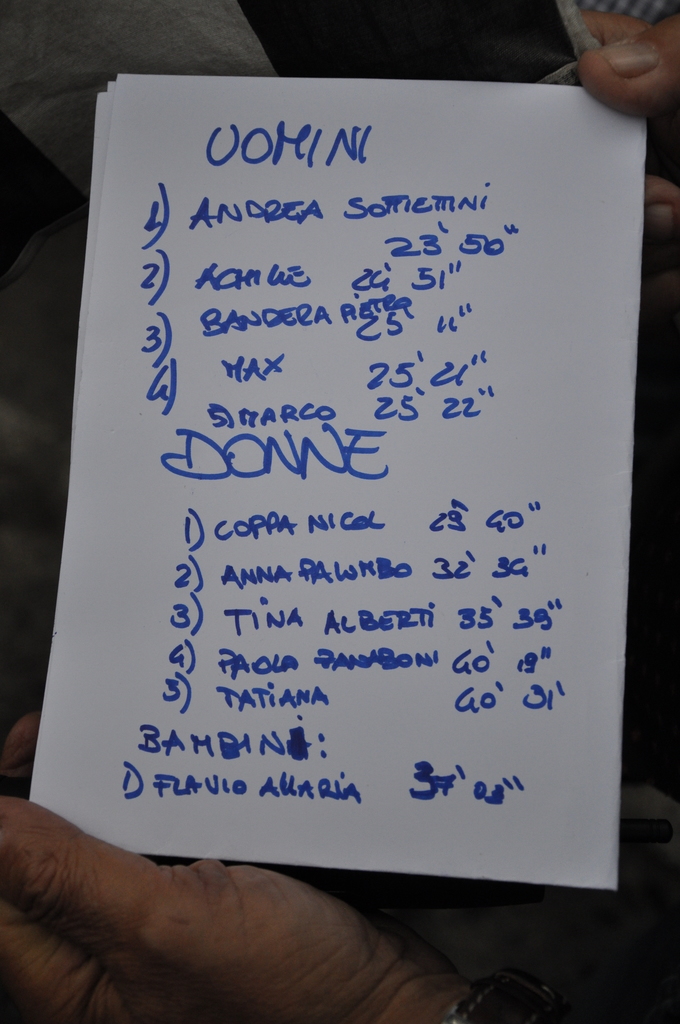 UOMINI
1) ANDREA SOTTETTINI
23' 50"
2) ACHILLE 24' 51"
3) BANDERA PIETRO
25' 11"
4) MAX 25' 21"
5) MARCO 25' 22"
DONNE
1) COPPA NICOL 29' 40"
2) ANNA PALUMBO 32' 34"
3) TINA ALBERTI 35' 39"
4) PAOLA 40' 19"
5) TATIANA 40' 31'
BAMBINI:
1) FLAVIO ALLARIA 37' 03"